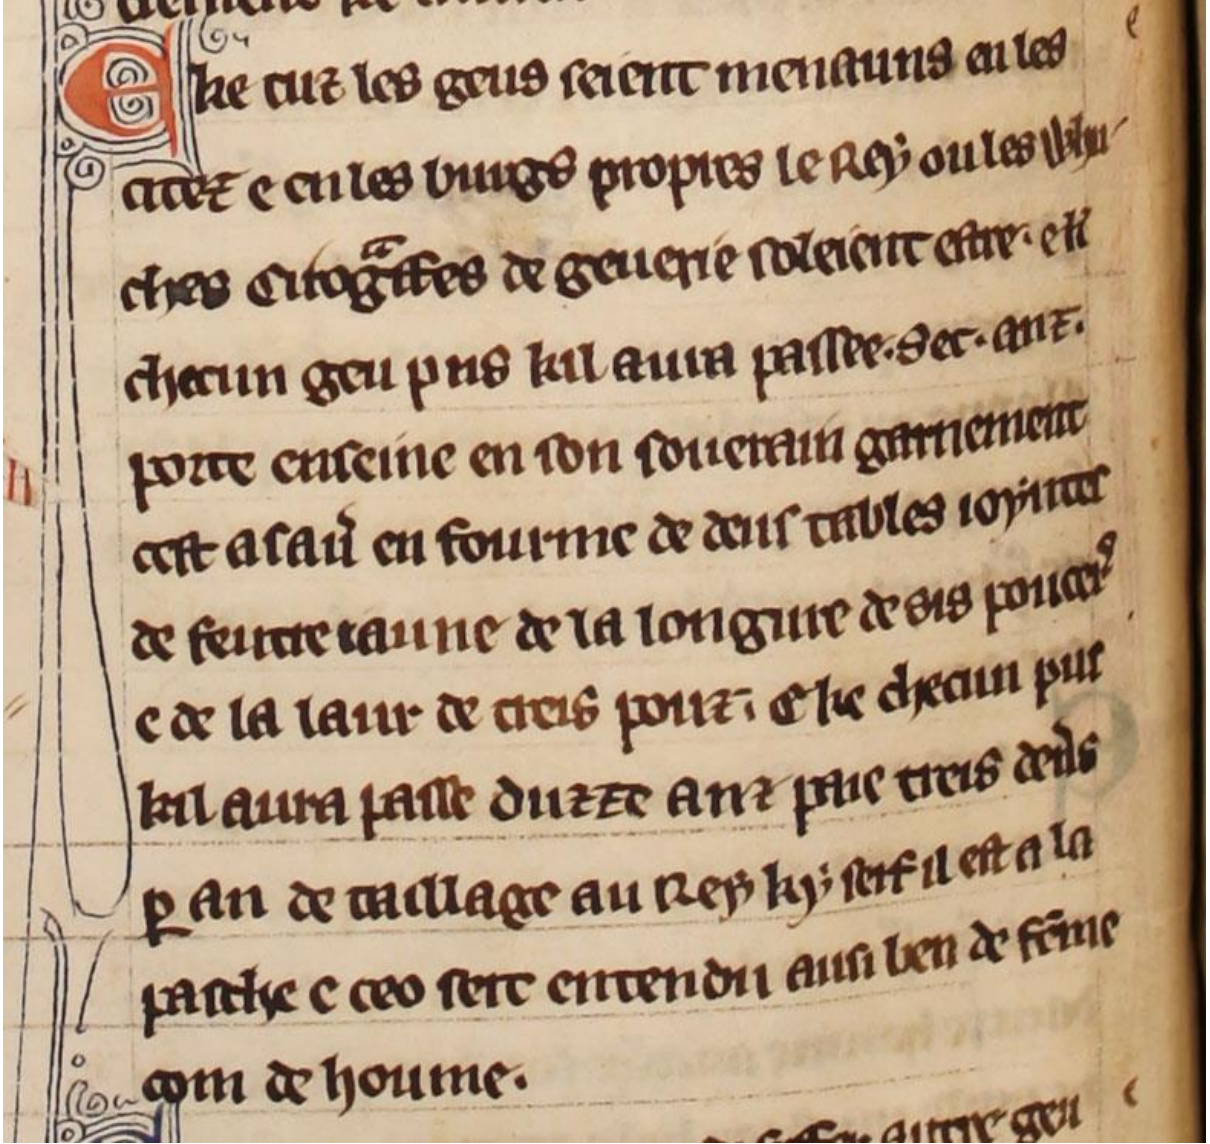 E ke tuz les geus seient menauns en les
citez e en les burgs propres le Rey ou les Whu
ches Cirogͣffes de geuerie soleient estre. e kͥ
checun geu pus kil aura passee. Sec. anz.
porte enseine en son souerain garnement
cest a sauͥ en fourme de deus tables ioyntes
de feutre iaune de la longure de sis poucerˢ
e de la laur de treis pouz. E ke checun pus
kil aura passe duzze anz paie treis deners
ꝑ an de taillage au Rey ky serf il est a la
pasche e ceo seit entendu ausi ben de fēme
com de houme.
autre geu